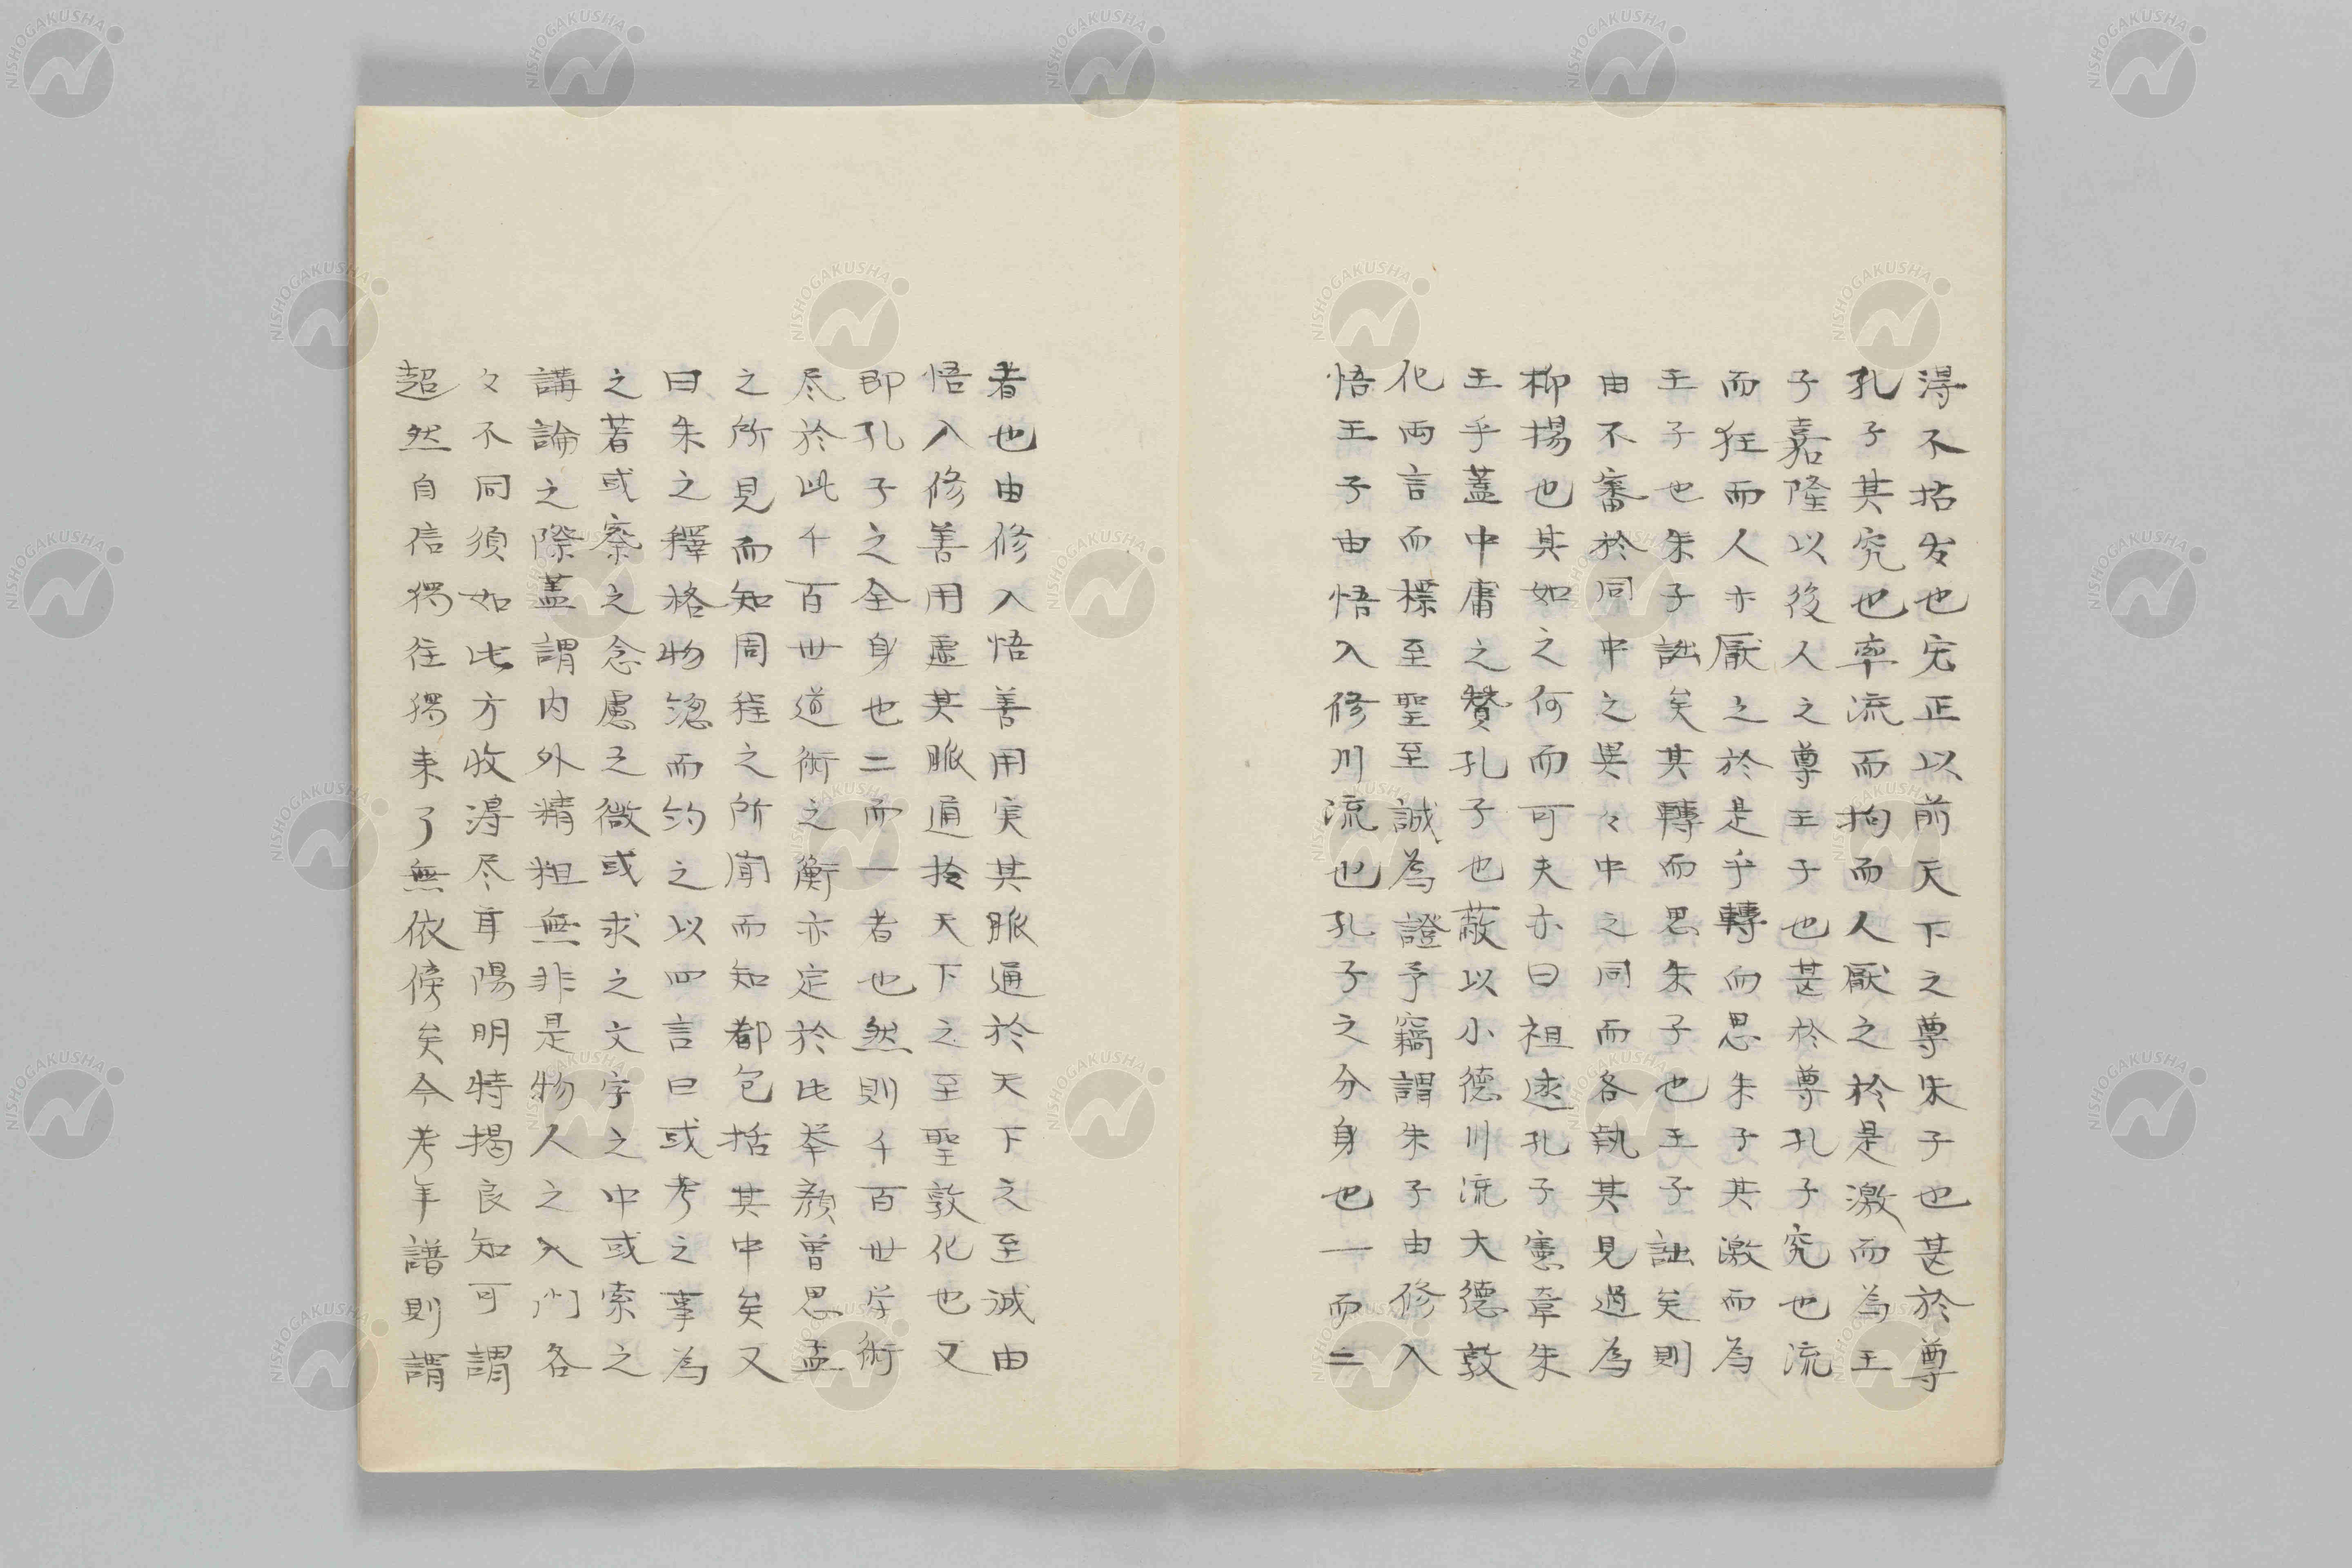 得不拈出也宪正以前天下之尊朱子也甚於尊
孔子其究也率流而拘而人厭之於是激而為王
子嘉隆以後人之尊王子也甚於尊孔子究也流
而狂而人亦厭之於是乎轉而思朱子其激而為
王子也朱子詘矣其轉而思朱子也王子詘矣則
由不審於同中之異々中之同而各執其見過為
柳揚也其如之何而可夫亦曰祖述孔子憲章朱
王乎蓋中庸之贊孔子也蔽以小德川流大德敦
化両言而標至聖至誠為證予竊謂朱子由修入
悟王子由悟入修川流也孔子之分身也一而二
者也由修入悟善用実其脈通於天下之至誠由
悟入修善用虛其脈通於天下之至聖敦化也又
即孔子之全身也二而一者也然則千百世学術
尽於此千百世道術之衡亦定於此挙顔曽思孟
之所見而知周程之所聞而知都包括其中矣又
曰朱之釋格物總而約之以四言曰或考之事為
之著或察之念慮之微或求之文字之中或索之
講論之際蓋謂内外精粗無非是物人之入門各
々不同須如此方收得尽耳陽明特揭良知可謂
超然自信獨往獨来了無依傍矣今考年譜則謂
NISHOGAKUSHA